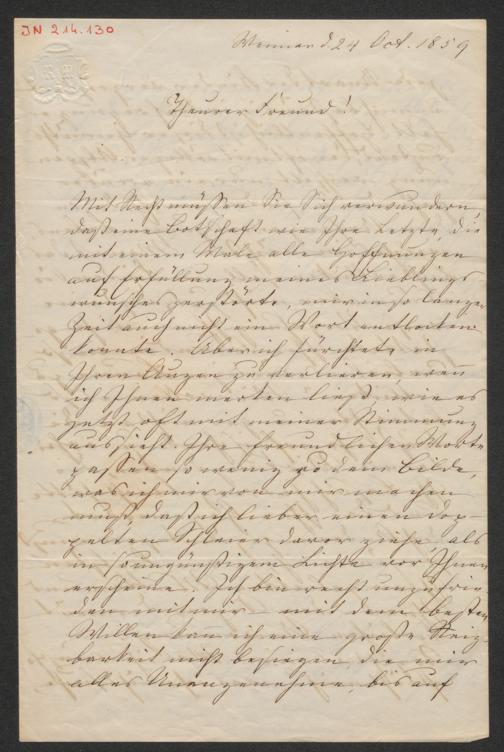 JN 214.130
Weimar d. 24 Oct. 1859
Theurer Freund!
Mit Recht müssen Sie Sich verwundern,
daß eine Botschaft wie Ihre Letzte, die
mit einem Male alle Hoffnungen
auf Erfüllung meines Lieblings
wunsches zerstörte, mir in so langer
Zeit auch nicht ein Wort entlocken
konnte. Aber ich fürchtete in
Ihren Augen zu verlieren, wenn
ich Ihnen merken ließ, wie es
jetzt oft mit meiner Stimmung
aussieht. Ihre freundlichen Worte
passen so wenig zu dem Bilde,
was ich mir von mir machen
muß, daß ich lieber einen dop
pelten Schleier davor ziehe, als
in so ungünstigem Lichte vor Ihnen
erscheine. Ich bin recht unzufrie
den mit mir – mit dem besten
Willen kann ich eine große Reiz
barkeit nicht besiegen die mir
alles Unangenehme, bis auf